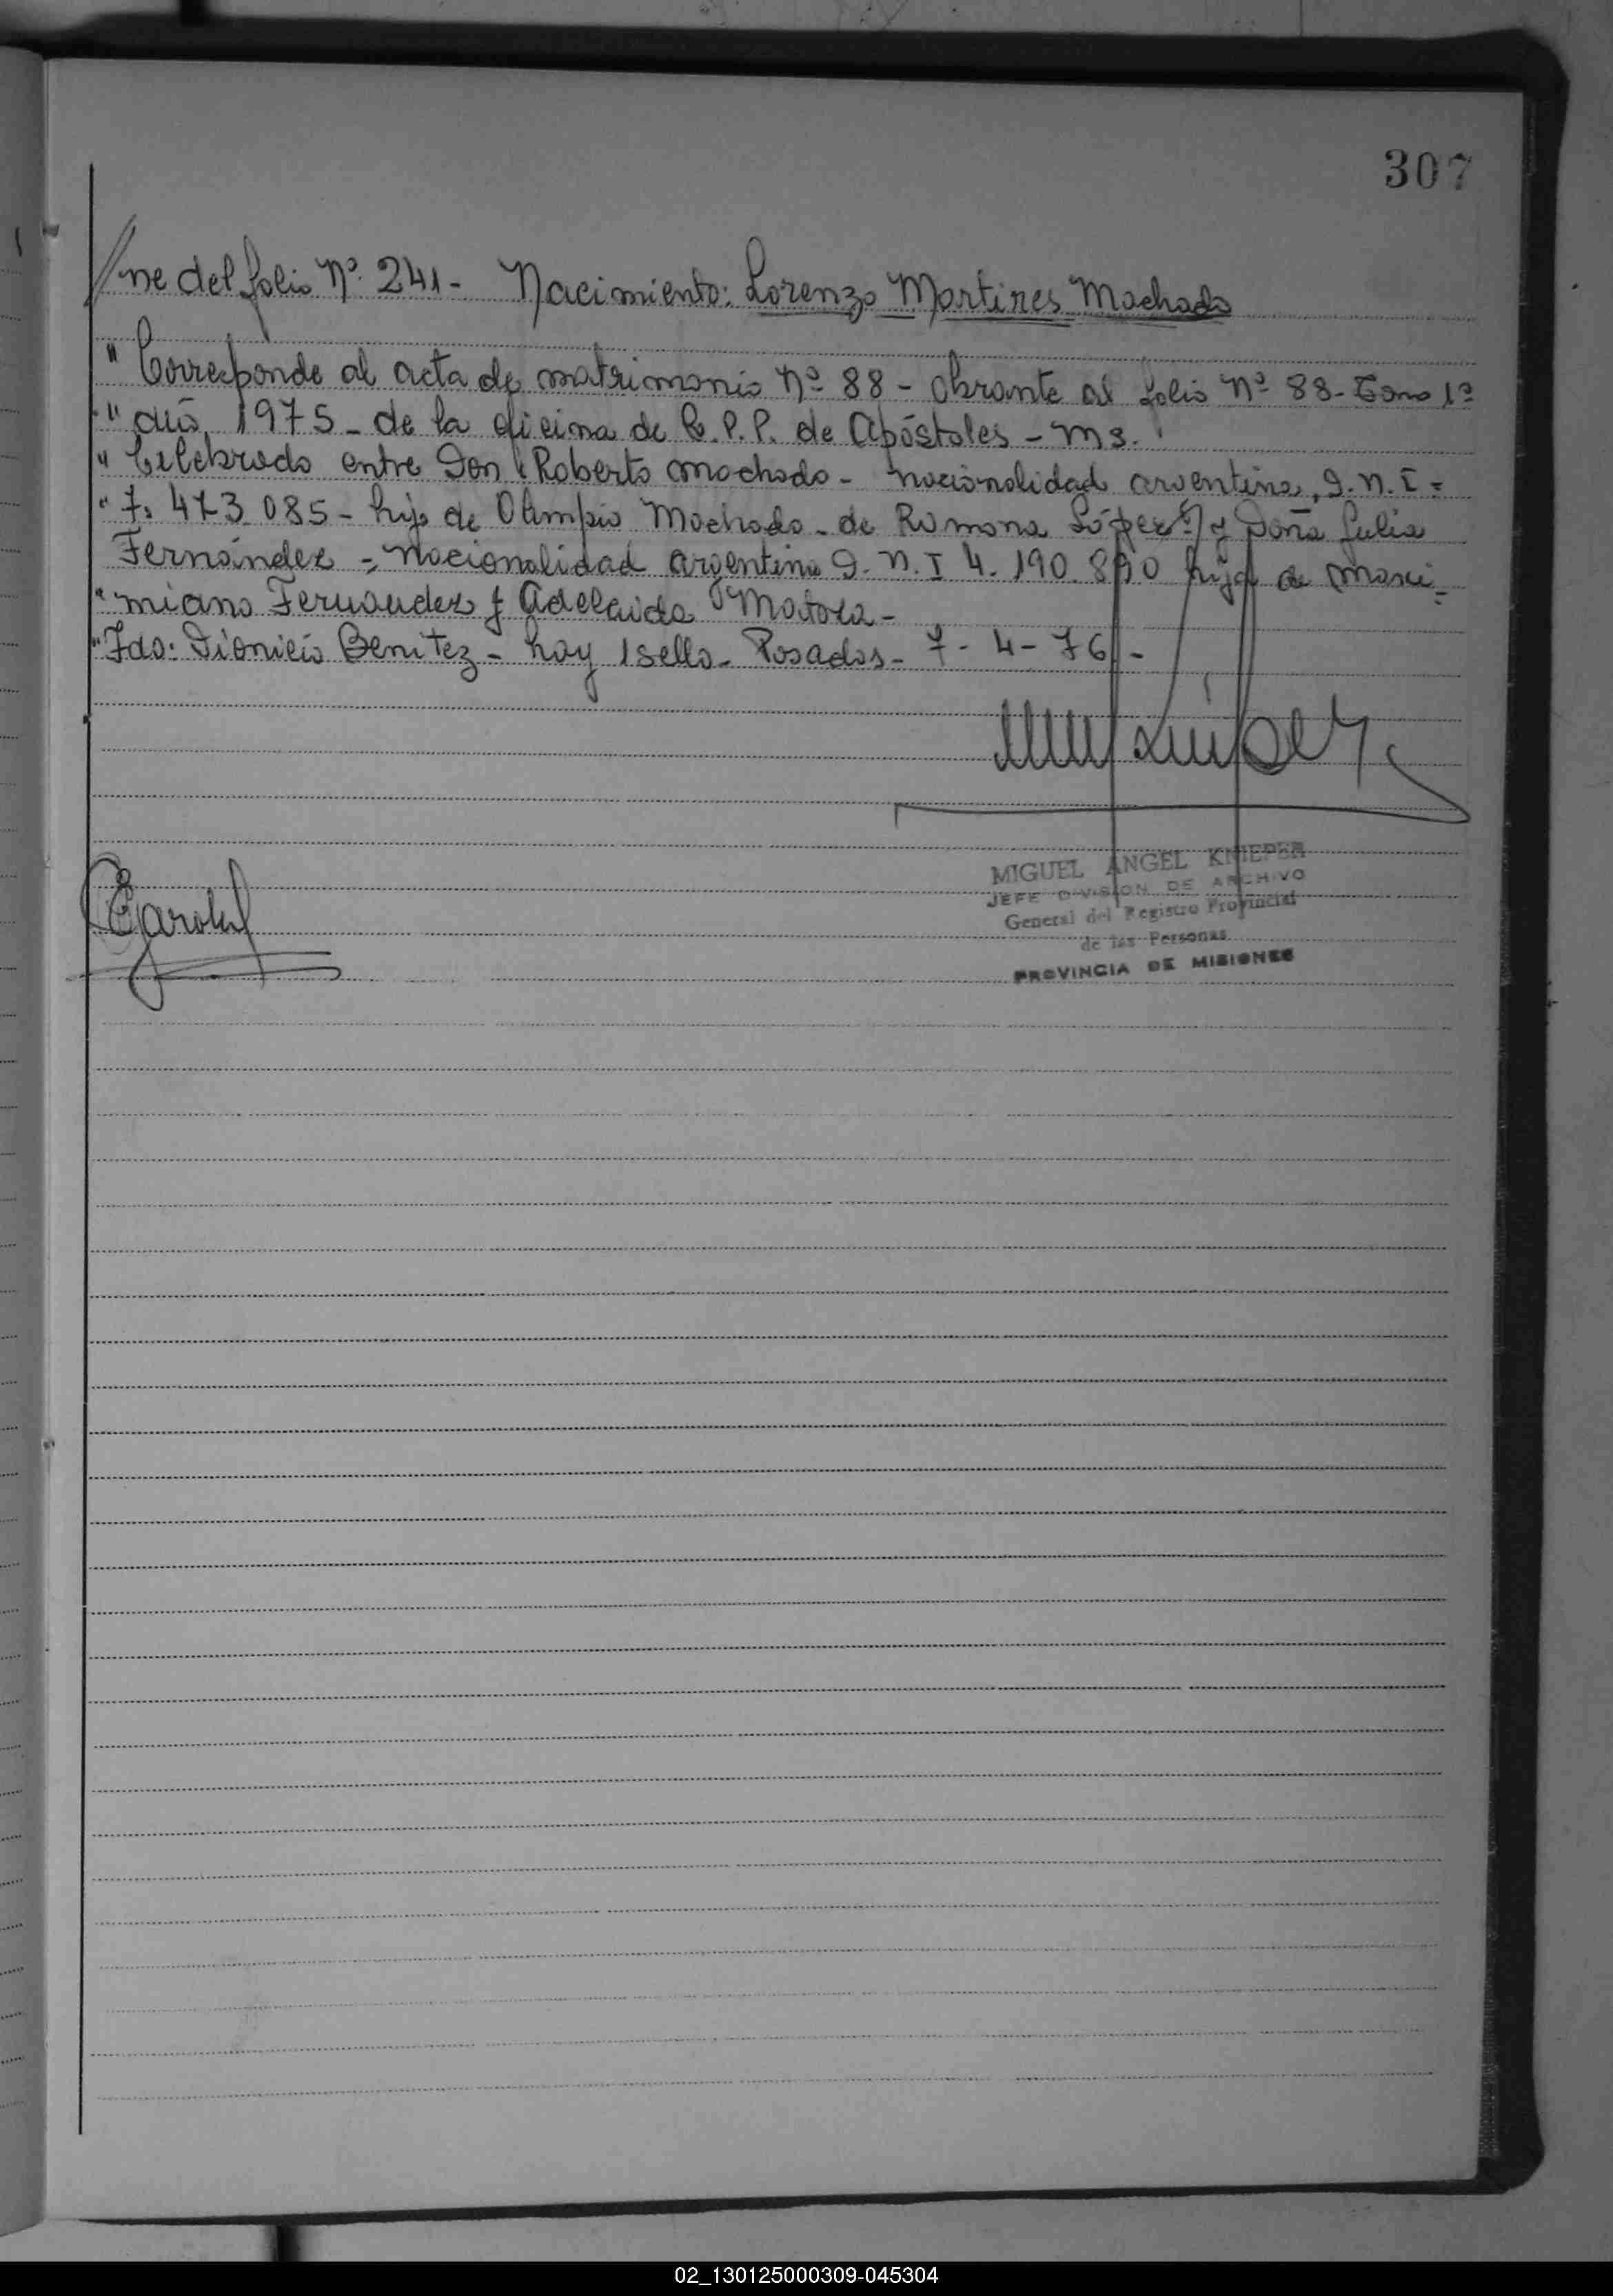 307
//ne del folio Nº 241 - Nacimiento: Lorenzo Martires Machado
" Corresponde al acta de matrimonio Nº 88 - obrante al folio Nº 88 - Tomo 1º
" año 1975 - de la oficina de R.P.P. de Apóstoles - Ms.
" Celebrado entre Don Roberto Machado - nacionalidad argentina, D.N.I =
" 7.473.085 - hijo de Olimpio Machado - de Ramona López y Doña Julia
Fernández = nacionalidad argentina D.N.I 4.190.890 hija de Maxi=
" miano Fernandez y Adelaida
" Fdo: Dionicio Benitez - hay 1 sello - Posadas - 7 - 4 - 76 -
MIGUEL ANGEL KNIEPER
JEFE DIVISION DE ARCHIVO
General del Registro Provincial
de las Personas
PROVINCIA DE MISIONES
02_130125000309-045304